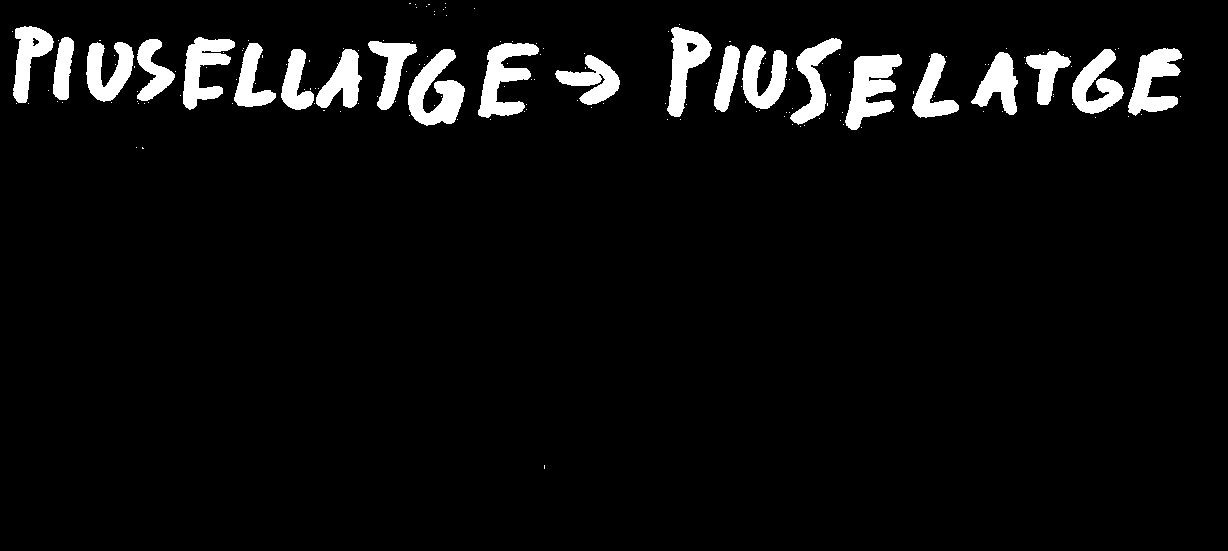 PIUSELLATGE → PIUSELATGE